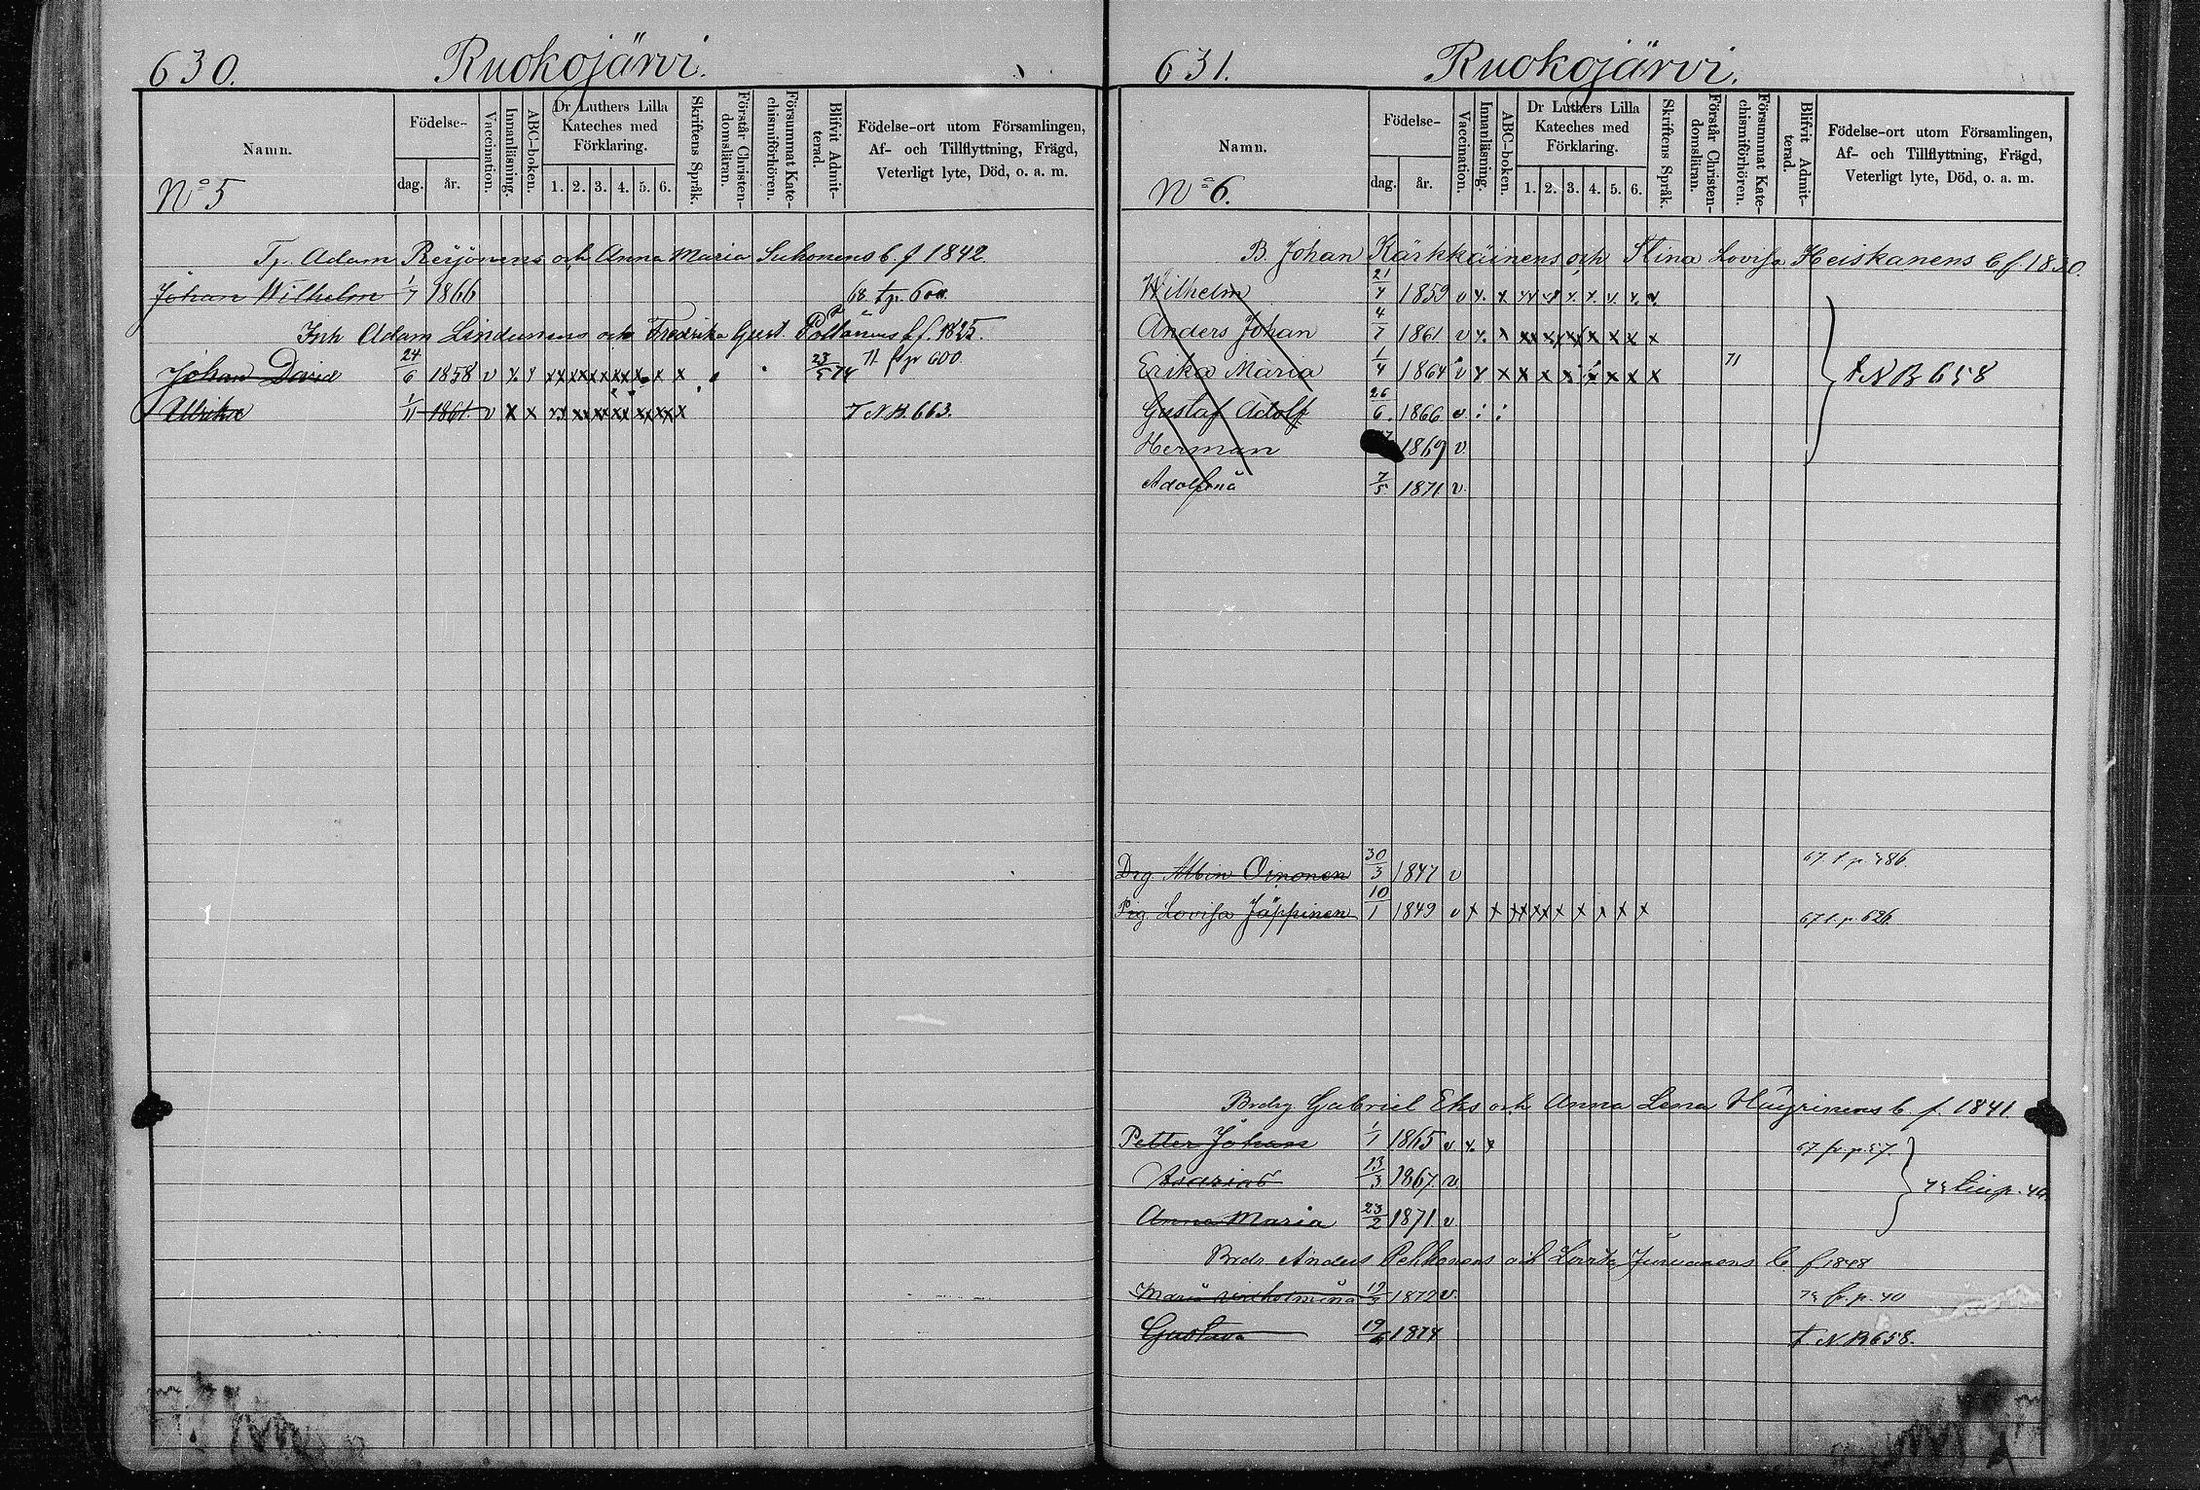 630. Ruokojärvi.
Namn.
Födelse-
dag. år.
Vaccination.
Innanläsning.
ABC-boken.
Dr Luthers Lilla
Kateches med
Förklaring.
1. 2. 3. 4. 5. 6.
Skriftens Språk.
Förstår Christen-
domsläran.
Försummat Kate-
chismiförhören.
Blifvit Admit-
terad.
Födelse-ort utom Församlingen,
Af- och Tillflyttning, Frägd,
Veterligt lyte, Död, o. a. m.
No 5
Tp. Adam Reijonens och Anna Maria Suhonens b. f 1842
Johan Wilhelm 1/7 1866 68 tp. 600.
Inh Adam Lindunens och Fredrika Gust. b. f. 1825.
Johan David 24/6 1858 v x x x x x x x x x x 23/5 74 71 600
Ulrika 1/11 1861 v x x x x x x x x x T N B. 663.
631. Ruokojärvi.
Namn.
Födelse-
dag. år.
Vaccination.
Innanläsning.
ABC-boken.
Dr Luthers Lilla
Kateches med
Förklaring.
1. 2. 3. 4. 5. 6.
Skriftens Språk.
Förstår Christen-
domsläran.
Försummat Kate-
chismiförhören.
Blifvit Admit-
terad.
Födelse-ort utom Församlingen,
Af- och Tillflyttning, Frägd,
Veterligt lyte, Död, o. a. m.
No 6.
B. Johan Kärkkäinens och Stina Lovisa Heiskanens b f 1830
Wilhelm 21/4 1859 v x x x x x x x x x
Anders Johan 4/7 1861 v x x x x x x x x x
Erika Maria 1/4 1864 v x x x x x x x x x 71 t N B 658
Gustaf Adolf 26/6 1866 v
Herman 1869 v
Adolfina 7/5 1871 v
Drg. Albin Oinonen 30/3 1847 v 67 t. p. 486
Pig. Lovisa Jäppinen 10/1 1849 v x x x x x x x x x 67 t. p. 626
Brdrg Gabriel Eks och Anna Lena Häyrinens b. f. 1841
Petter Johan 1/1 1865 v x x 67 fr. p. 57.
Asarias 13/3 1867 v
Anna Maria 23/2 1871 v
Brdr Anders Pekkonens och Lovisa b f 1848
Maria Wilhelmina 1872 v. fr. p. 40
Gustava 1874 T N. B. 658.